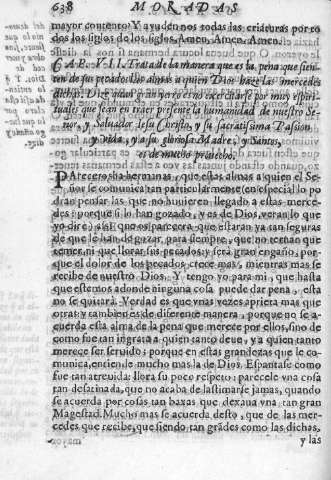 638 MORADAS
mayor contento? Y ayuden nos todas las criaturas por to
dos los siglos de los siglos, Amen, Amen, Amen.
CAP. VII. Trata de la manera que es la pena que sien
ten de sus pecados las almas a quien Dios haze las mercedes
dichas. Dize quan gran yerro es no exercitarse por muy espiri-
tuales que sean en traer presente la humanidad de nuestro Se-
ñor, y Saluador Iesu Christo, y su sacratissima Passion
y vida, y a su gloriosa Madre, y Santos,
es de mucho prouecho.
PArecerosha hermanas, que estas almas a quien el Se-
ñor se comunica tan particularmente (en especial lo po
dran pensar las que no huuieren llegado a estas merce-
des: porque si lo han gozado, y es de Dios, veran lo que
yo dire) assi que os parecera que estaran ya tan seguras
de que le han de gozar para siempre, que no ternan que
temer ni que llorar sus pecados: y será gran engaño, por-
que el dolor de los pecados crece mas, mientras mas se
recibe de nuestro Dios. Y tengo yo para mi, que hasta
que estemos adonde ninguna cosa puede dar pena, esta
no se quitará. Verdad es que vnas vezes aprieta mas que
otras: y tambien es de diferente manera, porque no se a-
cuerda esta alma de la pena que merece por ellos, sino de
como fue tan ingrata a quien tanto deue, y a quien tanto
merece ser seruido: porque en estas grandezas que le co-
munica, entiende mucho mas la de Dios. Espantase como
fue tan atreuida: llora su poco respeto: parecele vna cosa
tan desatinada, que no acaba de lastimarse jamas, quando
se acuerda por cosas tan baxas que dexaua vna tan gran
Magestad. Mucho mas se acuerda desto, que de las mer-
cedes que recibe, que siendo tan grãdes como las dichas,
y las